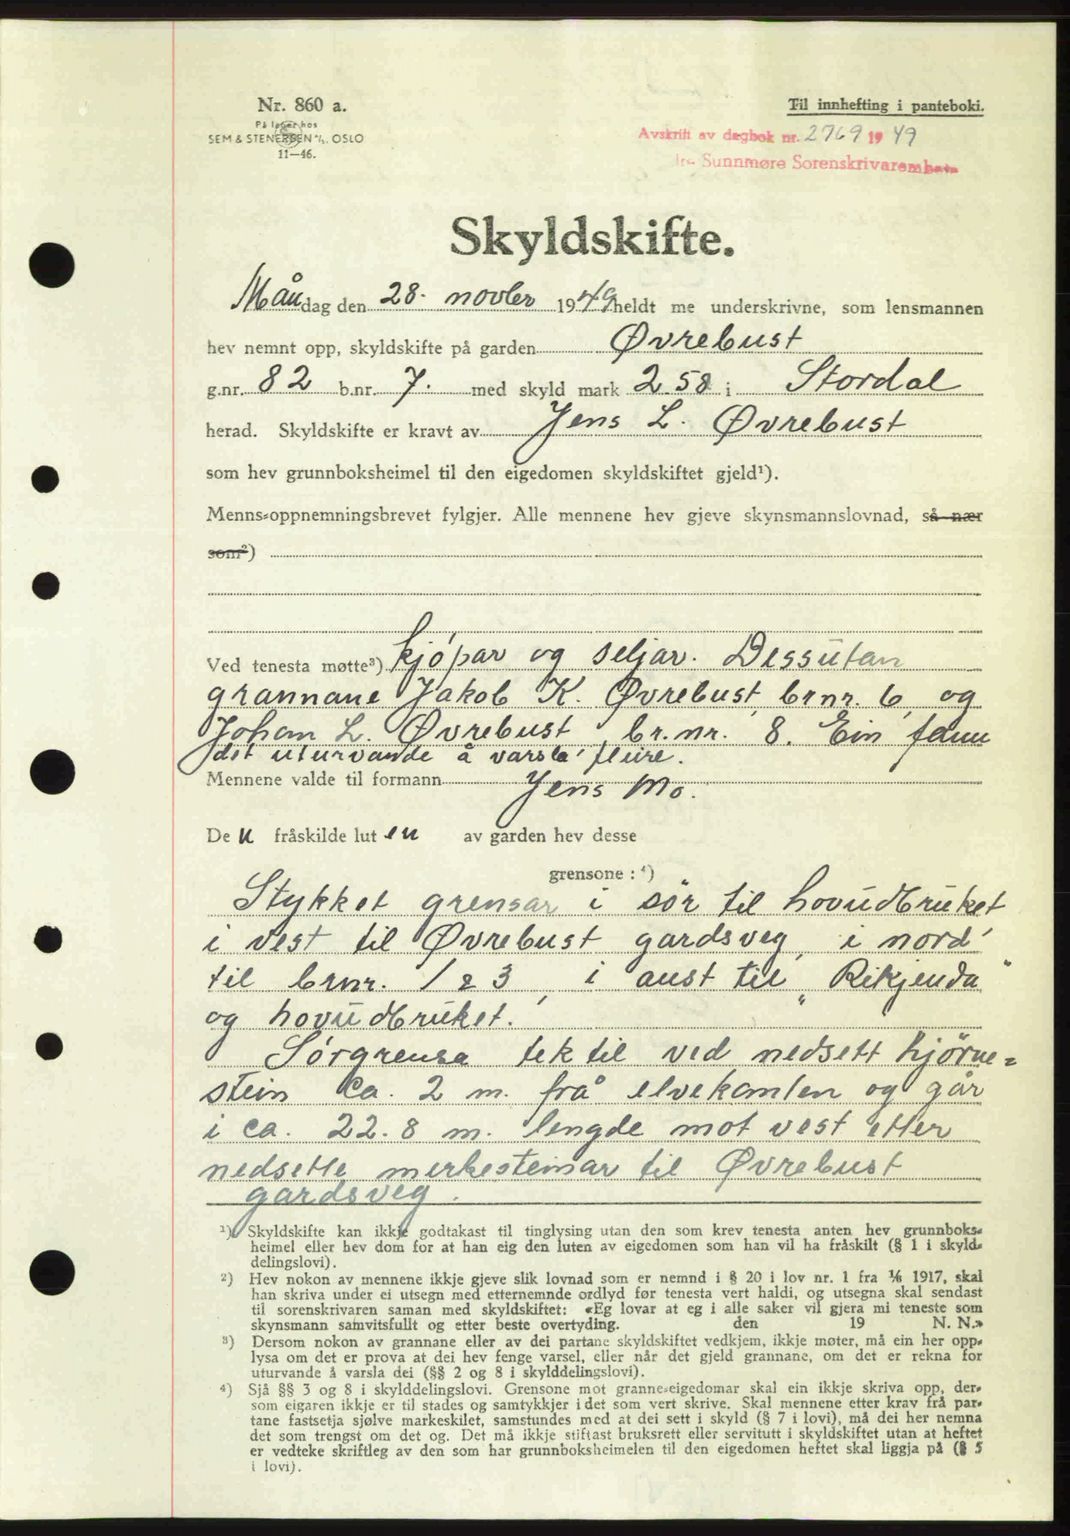 Nr. 860 a.
På lager hos
SEM & STENERSEN A/S. OSLO
11—46.
Til innhefting i panteboki.
Avskrift av dagbok nr. 2769 19 49
Sunnmøre Sorenskrivarembete
Skyldskifte.
Måndag den 28. novbr 1949 heldt me underskrivne, som lensmannen
hev nemnt opp, skyldskifte på garden Øvrebust
g.nr. 82 b.nr. 7. med skyld mark 2.58 i Stordal
herad. Skyldskifte er kravt av Jens L. Øvrebust
som hev grunnboksheimel til den eigedomen skyldskiftet gjeld¹).
Menns-oppnemningsbrevet fylgjer. Alle mennene hev gjeve skynsmannslovnad, så nær
som²)
Ved tenesta møtte³) kjøpar og seljar. Dessutan
grannane Jakob K. Øvrebust, brnr. 6, og
Johan L. Øvrebust, br.nr. 8. Ein fann
det uturvande å varsla fleire.
Mennene valde til formann Jens Mo.
De n fråskilde luten av garden hev desse
grensone: ⁴)
Stykket grensar i sör til hovudbruket
i vest til Øvrebust gardsveg, i nord
til brnr. 123, i aust til "Rikjenda"
og hovudbruket.
Sørgrensa tek til ved nedsett hjörne=
stein ca. 2 m. frå elvekanten og går
i ca. 22.8 m. lengde mot vest etter
nedsette merkesteinar til Øvrebust
gardsveg.
¹) Skyldskifte kan ikkje godtakast til tinglysing utan den som krev tenesta anten hev grunnboks-
heimel eller hev dom for at han eig den luten av eigedomen som han vil ha fråskilt (§ 1 i skyld-
delingslovi).
²) Hev nokon av mennene ikkje gjeve slik lovnad som er nemnd i § 20 i lov nr. 1 fra 1/6 1917, skal
han skriva under ei utsegn med etternemnde ordlyd før tenesta vert haldi, og utsegna skal sendast
til sorenskrivaren saman med skyldskiftet: «Eg lovar at eg i alle saker vil gjera mi teneste som
skynsmann samvitsfullt og etter beste overtyding. den 19 N. N.»
³) Dersom nokon av grannane eller av dei partane skyldskiftet vedkjem, ikkje møter, må ein her opp-
lysa om det er prova at dei hev fenge varsel, eller når det gjeld grannane, om det er rekna for
uturvande å varsla dei (§§ 2 og 8 i skylddelingslovi).
⁴) Sjå §§ 3 og 8 i skylddelingslovi. Grensone mot granne-eigedomar skal ein ikkje skriva opp, der-
som eigaren ikkje er til stades og samtykkjer i det som vert skrive. Skal mennene etter krav frå par-
tane fastsetja sjølve markeskilet, samstundes med at dei sett i skyld (§ 7 i lovi), må dei her nemna
det som trengst om det og. Det må ikkje stiftast bruksrett eller servitutt i skyldskiftet utan at heftet
er vedteke skriftleg av den som har grunnboksheimelen til den eigedomen heftet skal liggja på (§ 5
i lovi).